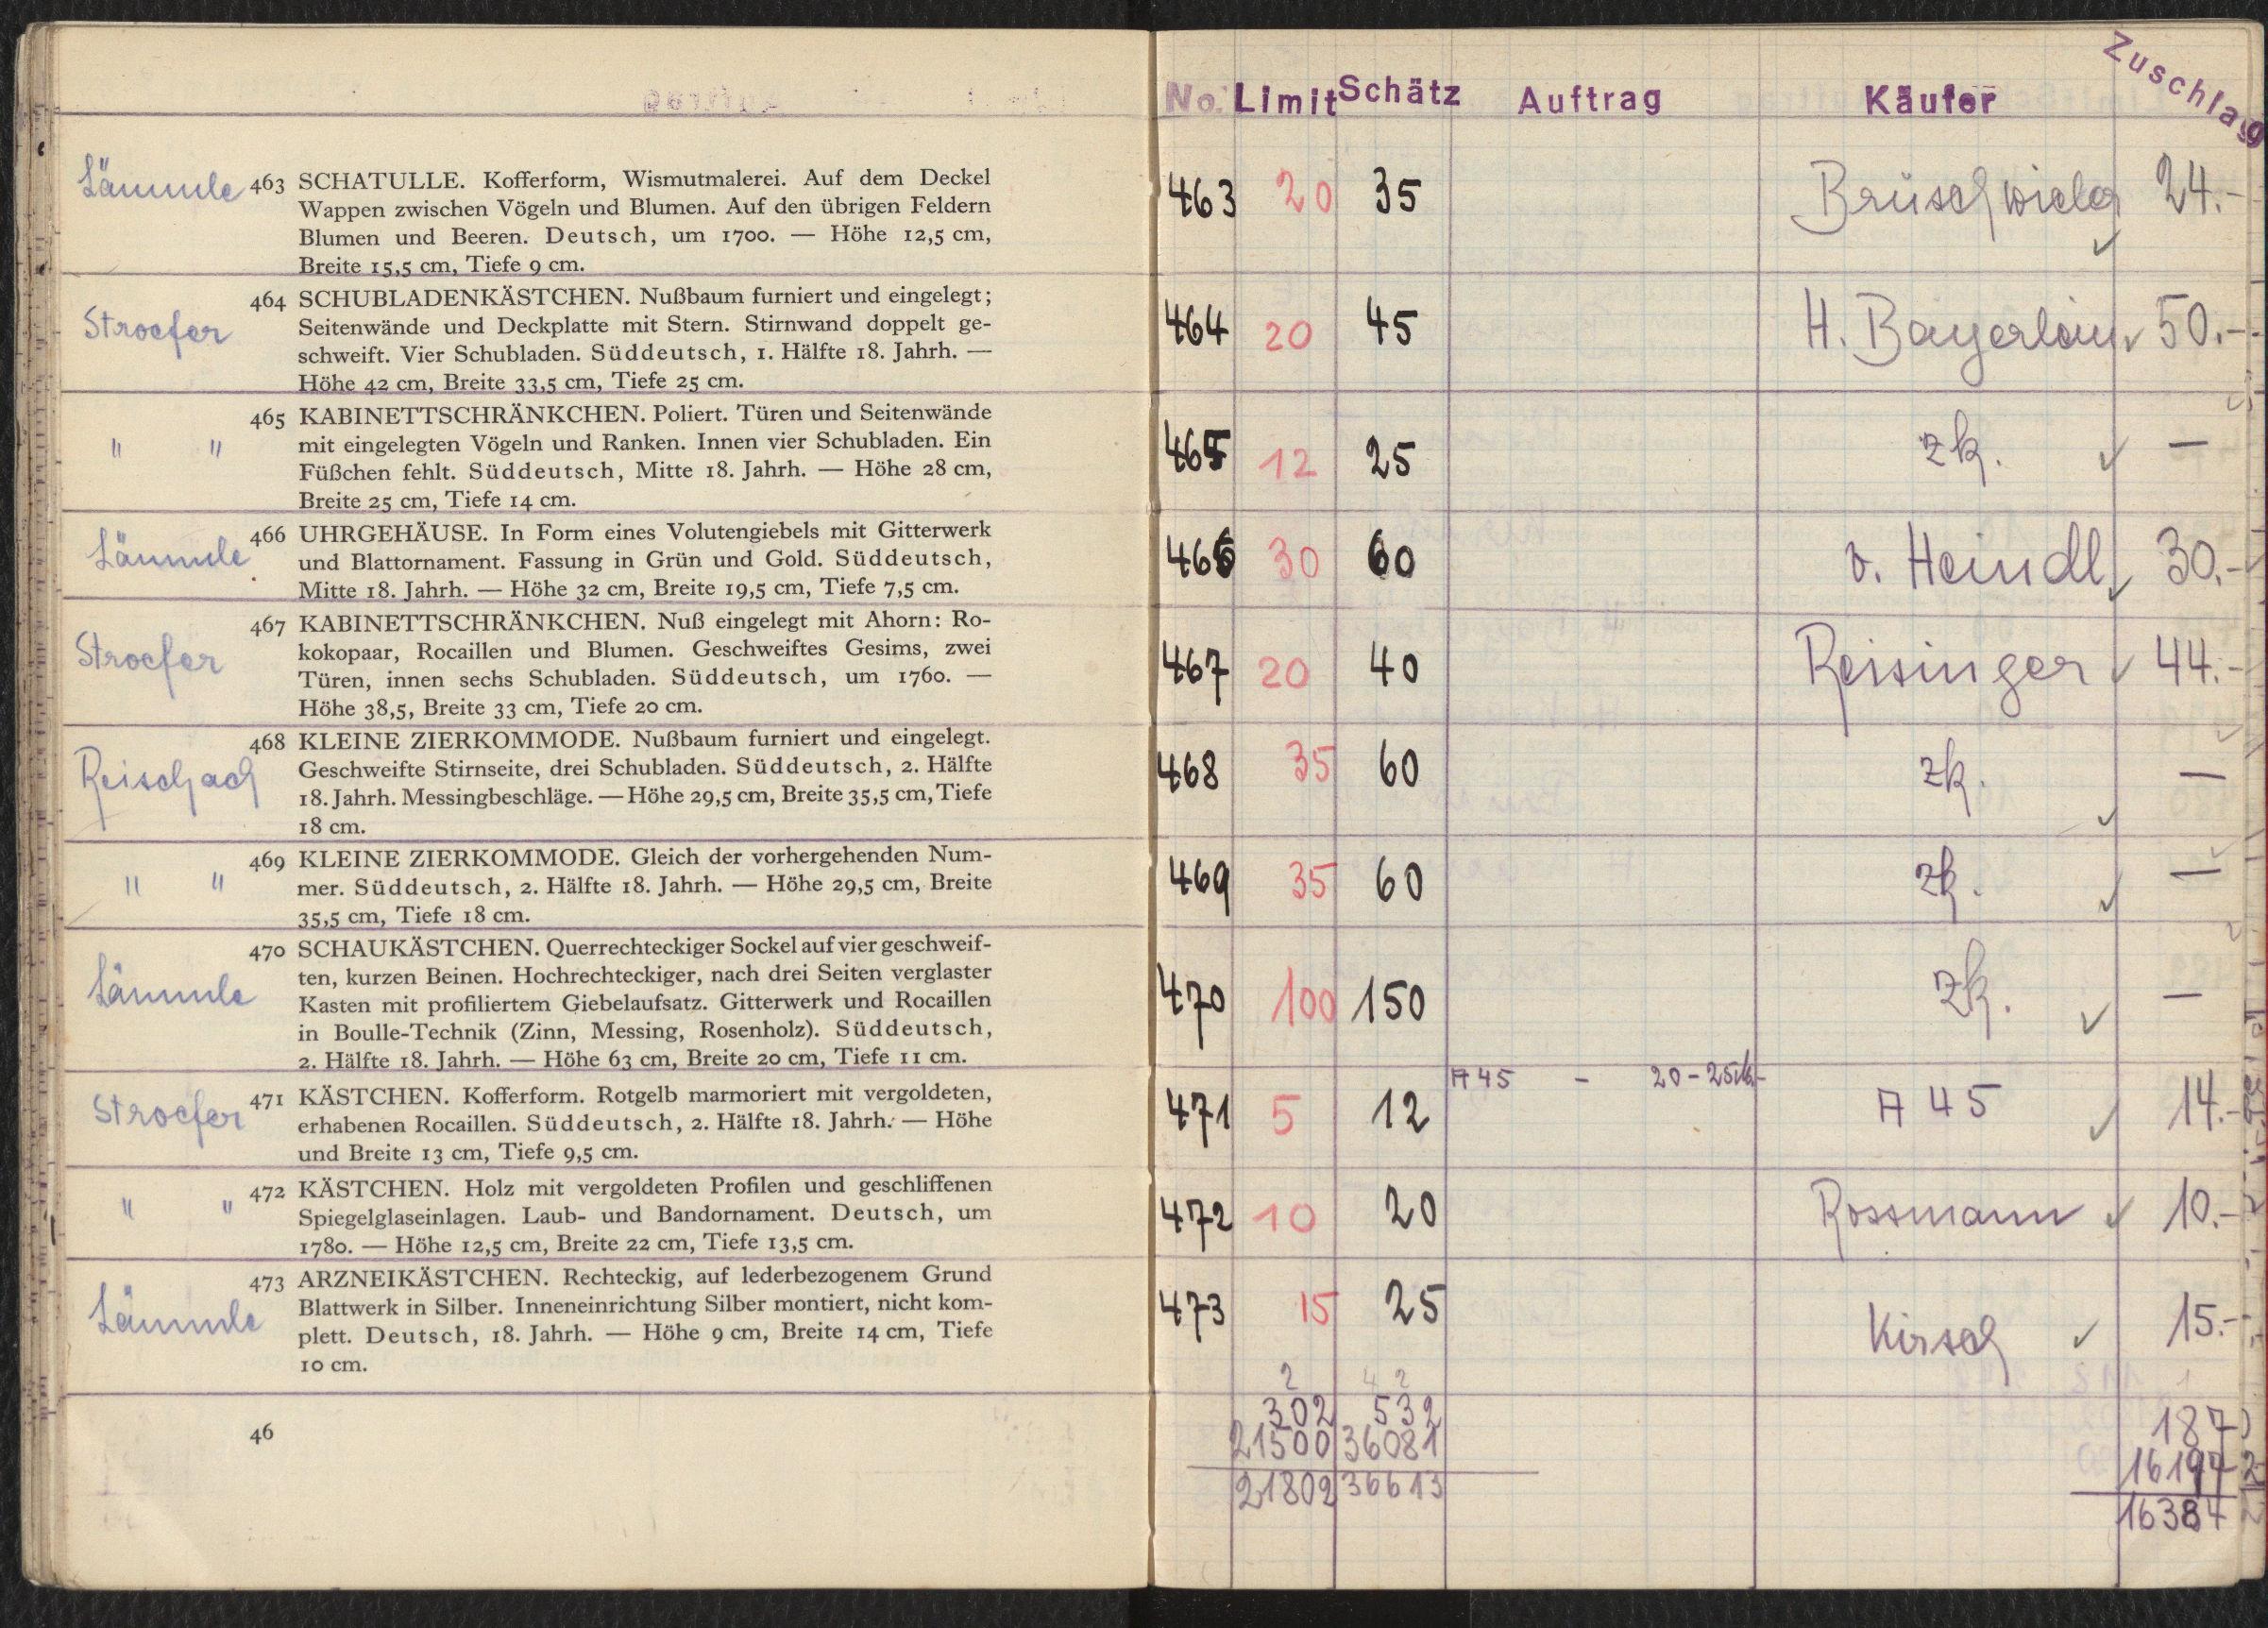 Lämmle 463 SCHATULLE. Kofferform, Wismutmalerei. Auf dem Deckel
Wappen zwischen Vögeln und Blumen. Auf den übrigen Feldern
Blumen und Beeren. Deutsch, um 1700. — Höhe 12,5 cm,
Breite 15,5 cm, Tiefe 9 cm.
Stroefer 464 SCHUBLADENKÄSTCHEN. Nußbaum furniert und eingelegt;
Seitenwände und Deckplatte mit Stern. Stirnwand doppelt ge-
schweift. Vier Schubladen. Süddeutsch, 1. Hälfte 18. Jahrh. —
Höhe 42 cm, Breite 33,5 cm, Tiefe 25 cm.
" " 465 KABINETTSCHRÄNKCHEN. Poliert. Türen und Seitenwände
mit eingelegten Vögeln und Ranken. Innen vier Schubladen. Ein
Füßchen fehlt. Süddeutsch, Mitte 18. Jahrh. — Höhe 28 cm,
Breite 25 cm, Tiefe 14 cm.
Lämmle 466 UHRGEHÄUSE. In Form eines Volutengiebels mit Gitterwerk
und Blattornament. Fassung in Grün und Gold. Süddeutsch,
Mitte 18. Jahrh. — Höhe 32 cm, Breite 19,5 cm, Tiefe 7,5 cm.
Stroefer 467 KABINETTSCHRÄNKCHEN. Nuß eingelegt mit Ahorn: Ro-
kokopaar, Rocaillen und Blumen. Geschweiftes Gesims, zwei
Türen, innen sechs Schubladen. Süddeutsch, um 1760. —
Höhe 38,5, Breite 33 cm, Tiefe 20 cm.
Reischach 468 KLEINE ZIERKOMMODE. Nußbaum furniert und eingelegt.
Geschweifte Stirnseite, drei Schubladen. Süddeutsch, 2. Hälfte
18. Jahrh. Messingbeschläge. — Höhe 29,5 cm, Breite 35,5 cm, Tiefe
18 cm.
" " 469 KLEINE ZIERKOMMODE. Gleich der vorhergehenden Num-
mer. Süddeutsch, 2. Hälfte 18. Jahrh. — Höhe 29,5 cm, Breite
35,5 cm, Tiefe 18 cm.
Lämmle 470 SCHAUKÄSTCHEN. Querrechteckiger Sockel auf vier geschweif-
ten, kurzen Beinen. Hochrechteckiger, nach drei Seiten verglaster
Kasten mit profiliertem Giebelaufsatz. Gitterwerk und Rocaillen
in Boulle-Technik (Zinn, Messing, Rosenholz). Süddeutsch,
2. Hälfte 18. Jahrh. — Höhe 63 cm, Breite 20 cm, Tiefe 11 cm.
Stroefer 471 KÄSTCHEN. Kofferform. Rotgelb marmoriert mit vergoldeten,
erhabenen Rocaillen. Süddeutsch, 2. Hälfte 18. Jahrh. — Höhe
und Breite 13 cm, Tiefe 9,5 cm.
" " 472 KÄSTCHEN. Holz mit vergoldeten Profilen und geschliffenen
Spiegelglaseinlagen. Laub- und Bandornament. Deutsch, um
1780. — Höhe 12,5 cm, Breite 22 cm, Tiefe 13,5 cm.
Lämmle 473 ARZNEIKÄSTCHEN. Rechteckig, auf lederbezogenem Grund
Blattwerk in Silber. Inneneinrichtung Silber montiert, nicht kom-
plett. Deutsch, 18. Jahrh. — Höhe 9 cm, Breite 14 cm, Tiefe
10 cm.
46
No. Limit Schätz Auftrag Käufer Zuschlag
463 20 35 Brüschwieler 24.-
464 20 45 H. Bayerlein 50.-
465 12 25 zk. —
466 30 60 v. Heindl 30.-
467 20 40 Reisinger 44.-
468 35 60 zk. —
469 35 60 zk. —
470 100 150 zk. —
A 45 - 20-25
471 5 12 A 45 14.-
472 10 20 Rossmann 10.-
473 15 25 Kirsch 15.-
2 4 2 1
302 532 187
21500 36081 16197
21802 36613 16384